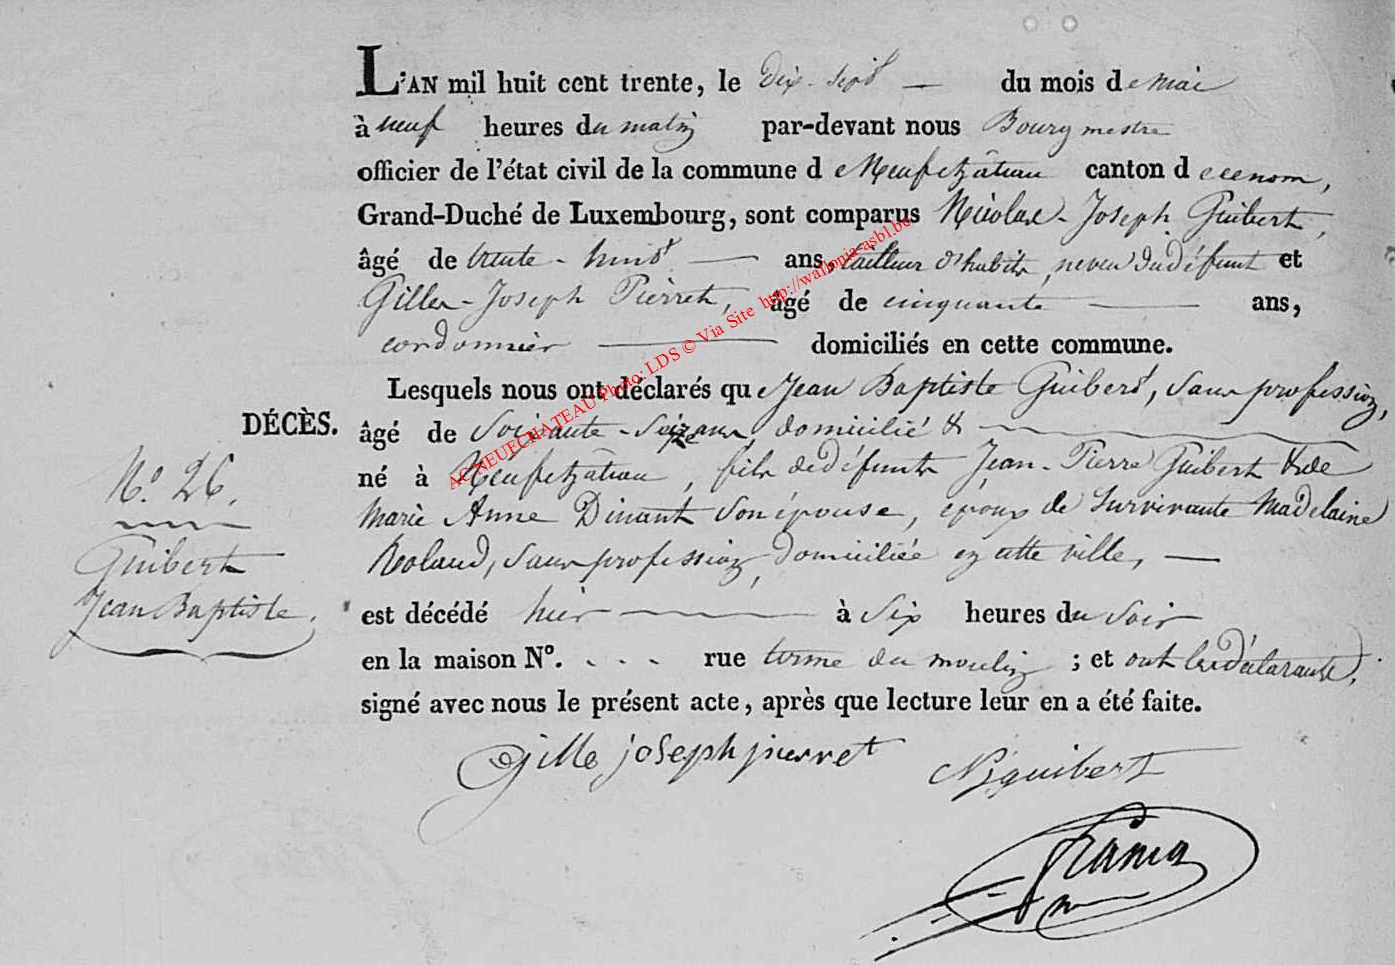 L'AN mil huit cent trente, le Dix-sept — du mois de mai
à neuf heures du matin par-devant nous Bourgmestre
officier de l'état civil de la commune de Neufchâteau canton de ce nom,
Grand-Duché de Luxembourg, sont comparus Nicolas-Joseph Guibert,
âgé de trente-huit — ans, tailleur d'habits, neveu du défunt et
Gilles-Joseph Pierret, âgé de cinquante — ans,
cordonnier — domiciliés en cette commune.
Lesquels nous ont déclarés que Jean Baptiste Guibert, sans profession,
DÉCÈS.
âgé de soixante-seize ans, domicilié &
né à Neufchâteau, fils de défunts Jean-Pierre Guibert & de
Marie Anne Dinant son épouse, époux de survivante Madelaine
Roland, sans profession, domiciliée en cette ville, —
est décédé hier — à six heures du soir
en la maison N°. . . . rue terme du moulin ; et ont les déclarants,
signé avec nous le présent acte, après que lecture leur en a été faite.
N° 26.
Guibert
Jean Baptiste.
gille joseph pierret
NJguibert
AC NEUFCHATEAU Photo: LDS © Via Site http://wallonia-asbl.be